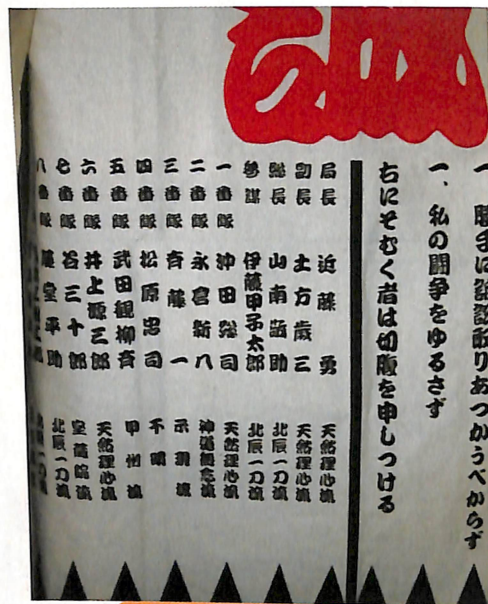 一、勝手に訴訟取りあつかうべからず
一、私の闘争をゆるさず
右にそむく者は切腹を申しつける
局長 近藤勇 天然理心流
副長 土方歳三 天然理心流
総長 山南敬助 北辰一刀流
参謀 伊藤甲子太郎 北辰一刀流
一番隊 沖田総司 天然理心流
二番隊 永倉新八 神道無念流
三番隊 斉藤一 示現流
四番隊 松原忠司 不明
五番隊 武田観柳斉 甲州流
六番隊 井上源三郎 天然理心流
七番隊 谷三十郎 宝蔵院流
八番隊 藤堂平助 北辰一刀流